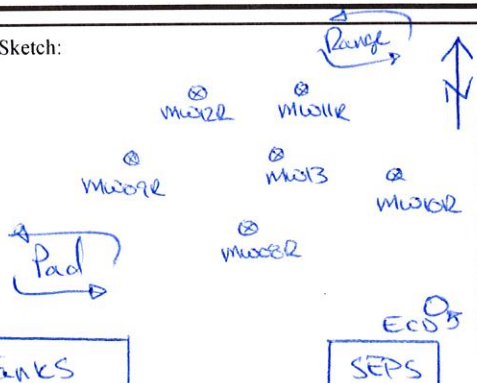 Sketch:
Range
N
MW12R
MW11R
MW09R
MW13
MW10R
MW08R
Pad
ECD5
SEPS